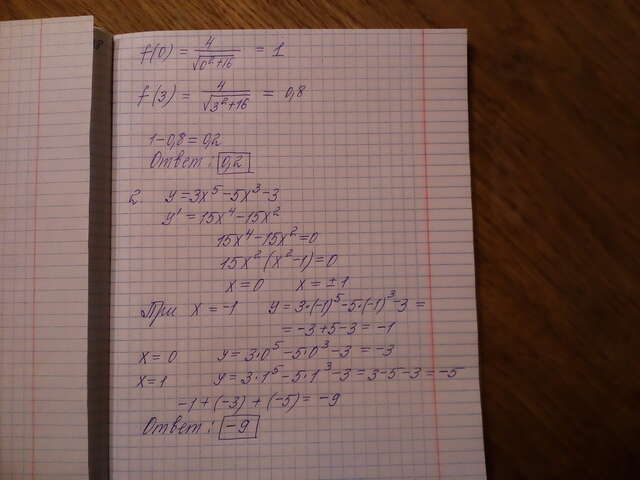 f(0) = 4/√(0²+16) = 1
f(3) = 4/√(3²+16) = 0,8
1-0,8=0,2
Ответ: 0,2
2. y=3x⁵-5x³-3
y'=15x⁴-15x²
15x⁴-15x²=0
15x²(x²-1)=0
x=0 x=±1
При x=-1 y=3·(-1)⁵-5·(-1)³-3=
=-3+5-3=-1
x=0 y=3·0⁵-5·0³-3=-3
x=1 y=3·1⁵-5·1³-3=3-5-3=-5
-1+(-3)+(-5)=-9
Ответ: -9